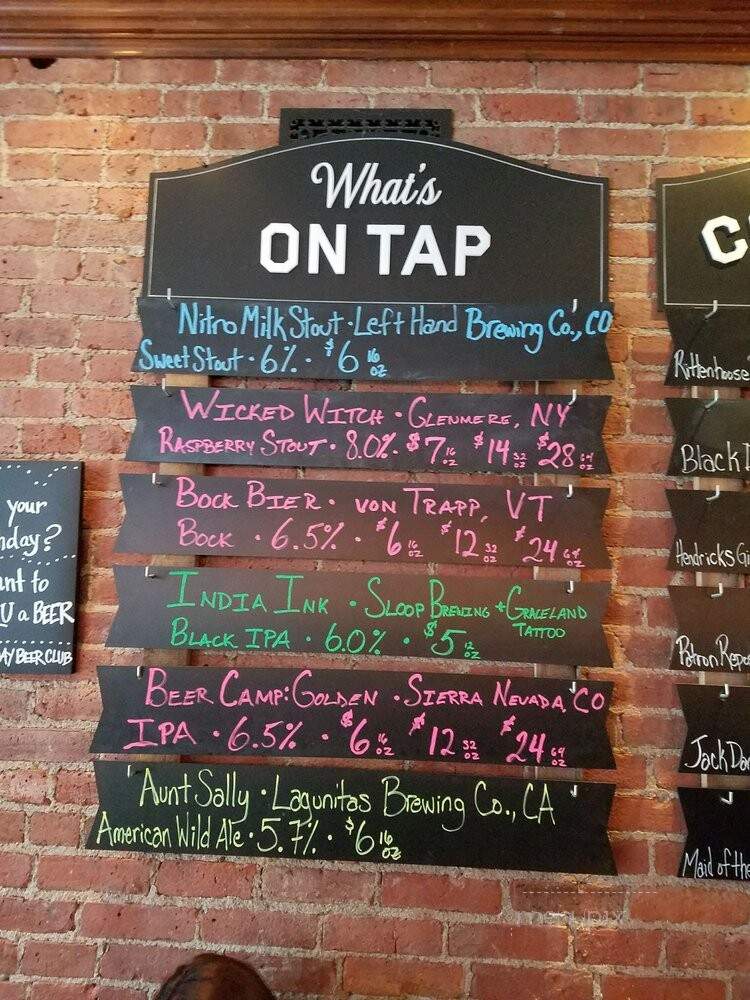 What's
ON TAP
Nitro Milk Stout · Left Hand Brewing Co., CO
Sweet Stout · 6% · $6 16 oz
WICKED WITCH · GLENMERE, NY
RASPBERRY STOUT · 8.0% · $7 16 oz $14 32 oz $28 64 oz
BOCK BIER · VON TRAPP, VT
BOCK · 6.5% · $6 16 oz $12 32 oz $24 64 oz
INDIA INK · SLOOP BREWING + GRACELAND TATTOO
BLACK IPA · 6.0% · $5 12 oz
BEER CAMP: GOLDEN · SIERRA NEVADA, CO
IPA · 6.5% · $6 16 oz $12 32 oz $24 64 oz
Aunt Sally · Lagunitas Brewing Co., CA
American Wild Ale · 5.7% · $6 16 oz
your
nday?
ant to
U a BEER
AY BEER CLUB
C
Rittenhouse
Black
Hendricks Gi
Patron Repo
Jack Dan
Maid of the